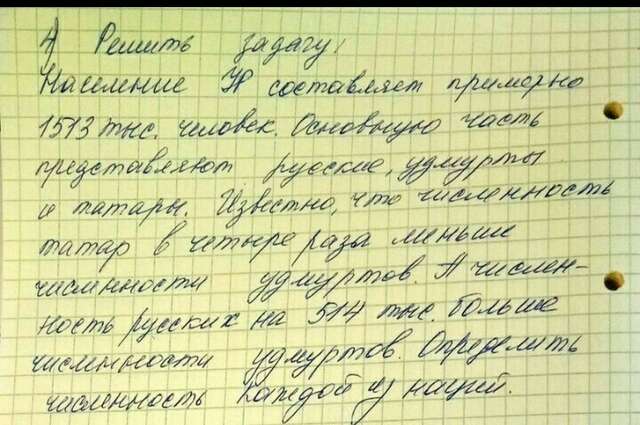 4) Решить задачу:
Население УР составляет примерно
1513 тыс. человек. Основную часть
представляют русские, удмурты
и татары. Известно, что численность
татар в четыре раза меньше
численности удмуртов. А числен-
ность русских на 514 тыс. больше
численности удмуртов. Определить
численность каждой из наций.